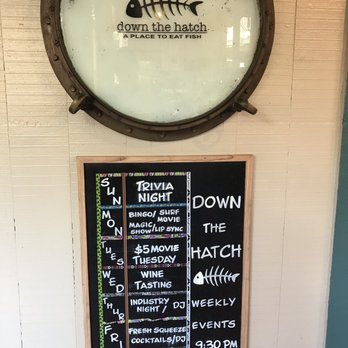 down the hatch
A PLACE TO EAT FISH
SUN
TRIVIA
NIGHT
MON
BINGO/ SURF
MOVIE
MAGIC
SHOW/LIP SYNC
TUES
$5 MOVIE
TUESDAY
WED
WINE
TASTING
THUR
INDUSTRY
NIGHT / DJ
FRI
FRESH SQUEEZE
COCKTAILS/DJ
DOWN
THE
HATCH
WEEKLY
EVENTS
9:30 PM